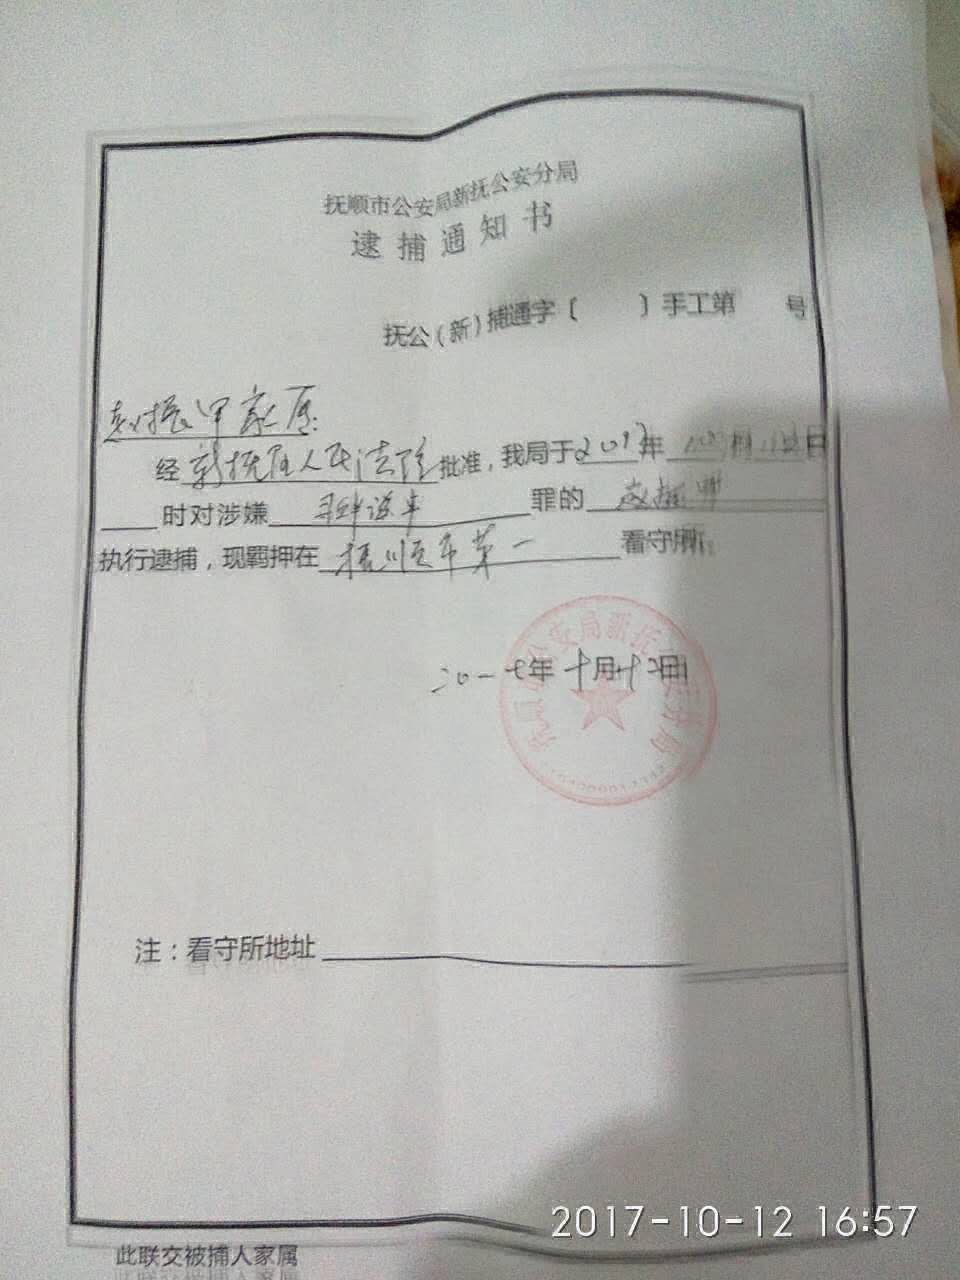 抚顺市公安局新抚公安分局
逮捕通知书
抚公（新）捕通字〔 〕手工第 号
赵振甲家属：
经新抚区人民法院批准，我局于2017年 月 日
时对涉嫌寻衅滋事罪的赵振甲
执行逮捕，现羁押在抚顺市第一看守所
二〇一七年十月十二日
公安局新抚 分局
注：看守所地址
2017-10-12 16:57
此联交被捕人家属